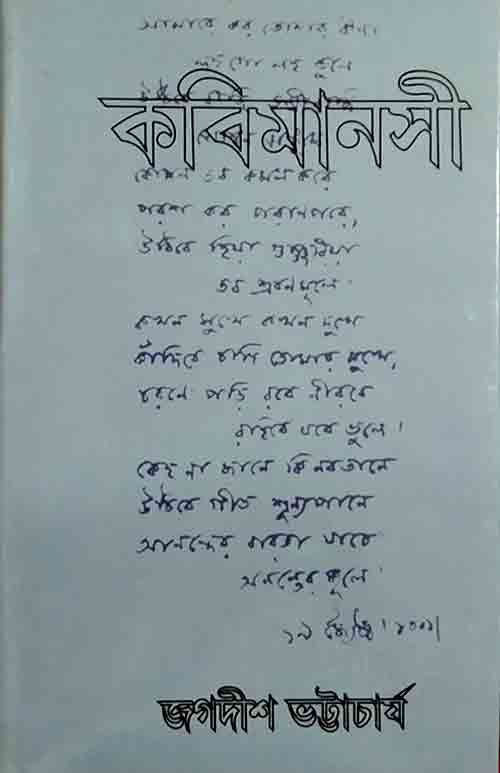 আমারে কর তোমার বীণা
লহ গো লহ তুলে
উঠিবে
কবিমানসী
কোমল তব কমল করে
পরশ কর পরাণ পরে,
উঠিবে হিয়া গুঞ্জরিয়া
তব শ্রবণমূলে।
কখন সুখে কখন দুখে
কাঁদিবে চাহি তোমার মুখে,
চরণে পড়ি রবে নীরবে
রহিবে যবে ভুলে।
কেহ না জানে কি নব তানে
উঠিবে গীত শূন্যপানে
আনন্দের বারতা যাবে
অনন্তের কূলে।
জগদীশ ভট্টাচার্য